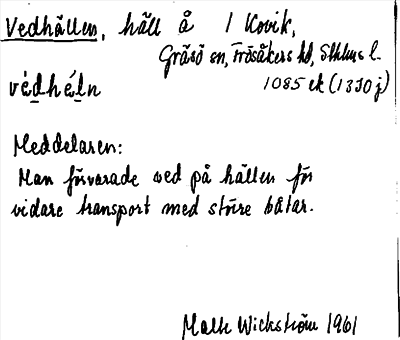 Vedhällen, häll å I Kovik,
Gräsö sn, Frösåkers hd, Sthlms l.
védhéln 1085 ek (13I0j)
Meddelaren:
Man förvarade ved på hällen för
vidare transport med större båtar.
Malte Wickström 1961